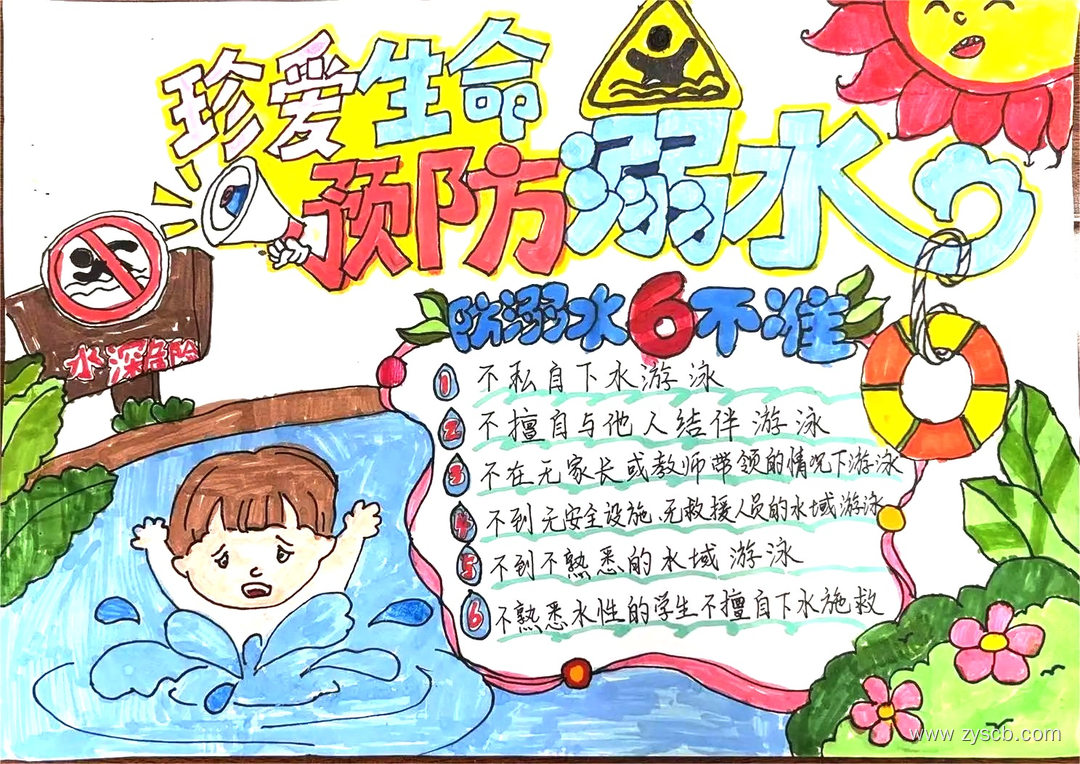 珍爱生命
预防溺水
水深危险
防溺水6不准
1 不私自下水游泳
2 不擅自与他人结伴游泳
3 不在无家长或教师带领的情况下游泳
4 不到无安全设施、无救援人员的水域游泳
5 不到不熟悉的水域游泳
6 不熟悉水性的学生不擅自下水施救
www.zyscb.com